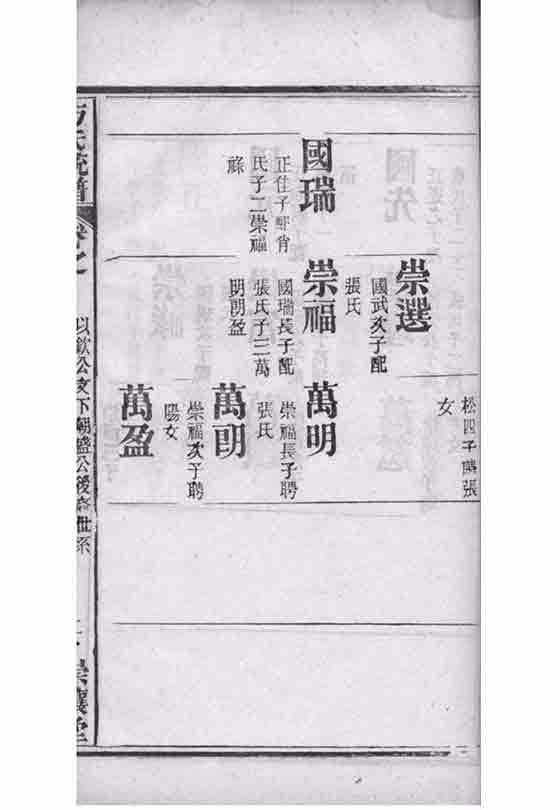 松四子聘張
女
崇選
國武次子配
張氏
國瑞
正住子配肖
氏子二崇福
祿
崇福
國瑞長子配
張氏子三萬
明朗盈
萬明
崇福長子聘
張氏
萬朗
崇福次子聘
陽女
萬盈
氏統譜
以欽公支下朝盛公後裔世系